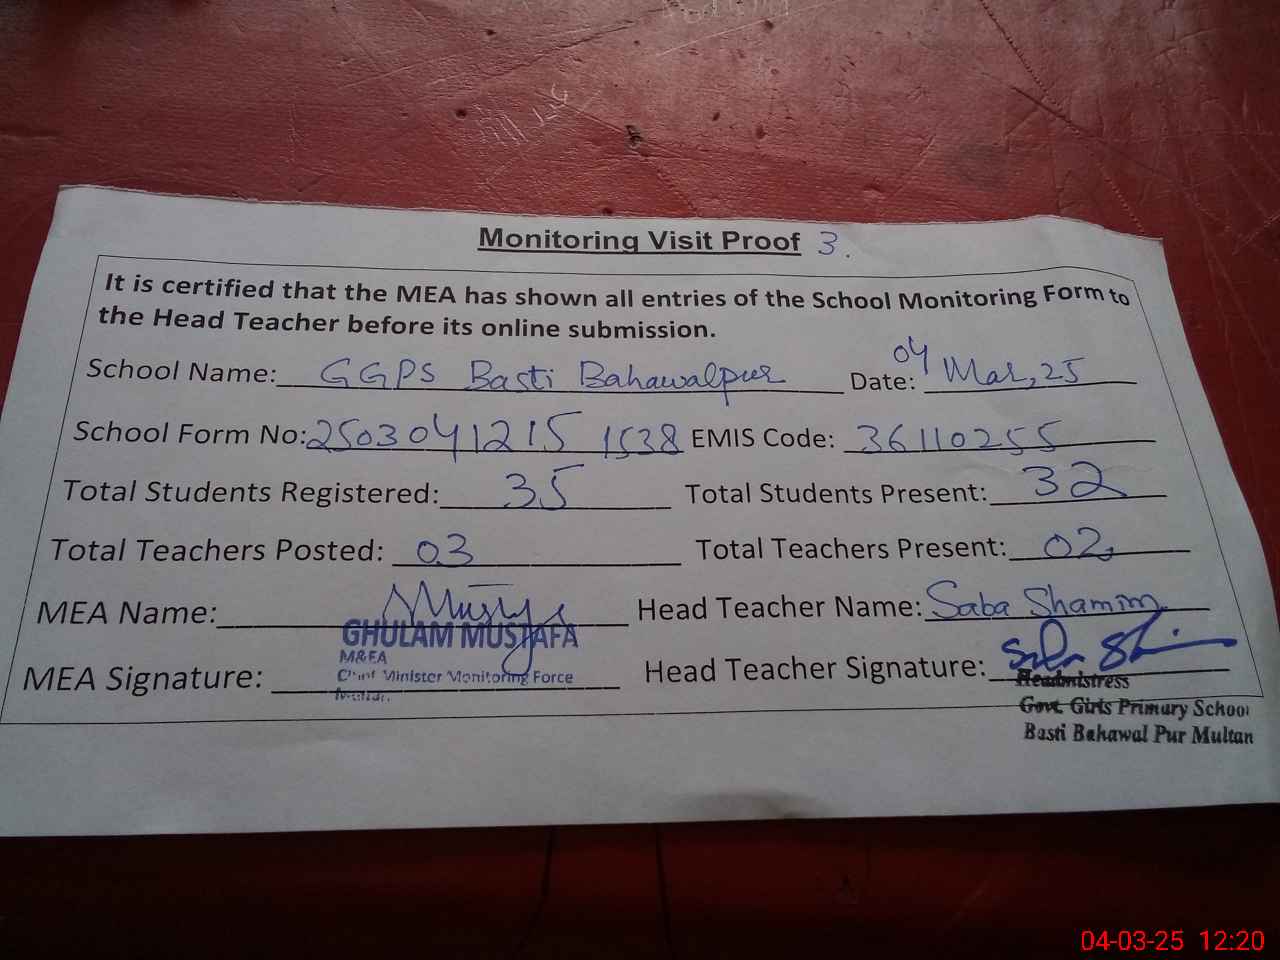 Monitoring Visit Proof 3.
It is certified that the MEA has shown all entries of the School Monitoring Form to
the Head Teacher before its online submission.
School Name: GGPS Basti Bahawalpur Date: 04 Mar, 25
School Form No: 2503041215 1538 EMIS Code: 36110255
Total Students Registered: 35 Total Students Present: 32
Total Teachers Posted: 03 Total Teachers Present: 02
MEA Name: Head Teacher Name: Saba Shamim
GHULAM MUSTAFA
M&EA
Chief Minister Monitoring Force
Multan.
MEA Signature: Head Teacher Signature:
Headmistress
Govt. Girls Primary School
Basti Bahawal Pur Multan
04-03-25 12:20